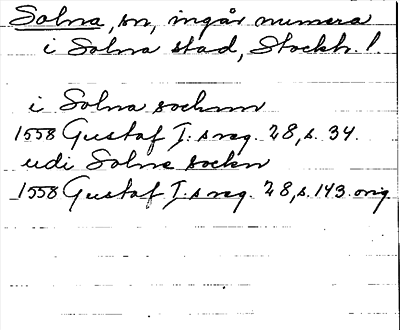 Solna, sn, ingår numera
i Solna stad, Stockh. l.
i Solna sochnn
1558 Gustaf I:s reg. 28, s. 34.
udi Solne sockn
1558 Gustaf I:s reg. 28, s. 143. orig.